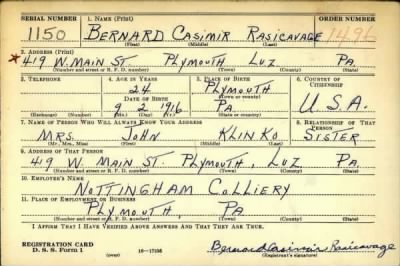 SERIAL NUMBER 1. NAME (Print) ORDER NUMBER
1150 BERNARD CASIMIR RASICAVAGE 1496
(First) (Middle) (Last)
2. ADDRESS (Print)
*419 W. MAIN ST. PLYMOUTH LUZ PA.
(Number and street or R. F. D. number) (Town) (County) (State)
3. TELEPHONE 4. AGE IN YEARS 5. PLACE OF BIRTH 6. COUNTRY OF CITIZENSHIP
24 PLYMOUTH
(Town or county)
DATE OF BIRTH
9 2 1916 PA. U.S.A.
(Exchange) (Number) (Mo.) (Day) (Yr.) (State or country)
7. NAME OF PERSON WHO WILL ALWAYS KNOW YOUR ADDRESS 8. RELATIONSHIP OF THAT PERSON
MRS. JOHN KLINKO SISTER
(Mr., Mrs., Miss) (First) (Middle) (Last)
9. ADDRESS OF THAT PERSON
419 W. MAIN ST. PLYMOUTH, LUZ PA.
(Number and street or R. F. D. number) (Town) (County) (State)
10. EMPLOYER'S NAME
NOTTINGHAM COLLIERY
11. PLACE OF EMPLOYMENT OR BUSINESS
PLYMOUTH, PA
(Number and street or R. F. D. number) (Town) (County) (State)
I AFFIRM THAT I HAVE VERIFIED ABOVE ANSWERS AND THAT THEY ARE TRUE.
REGISTRATION CARD
D. S. S. Form 1 (over) 16-17105 Bernard Casimir Rasicavage
(Registrant's signature)